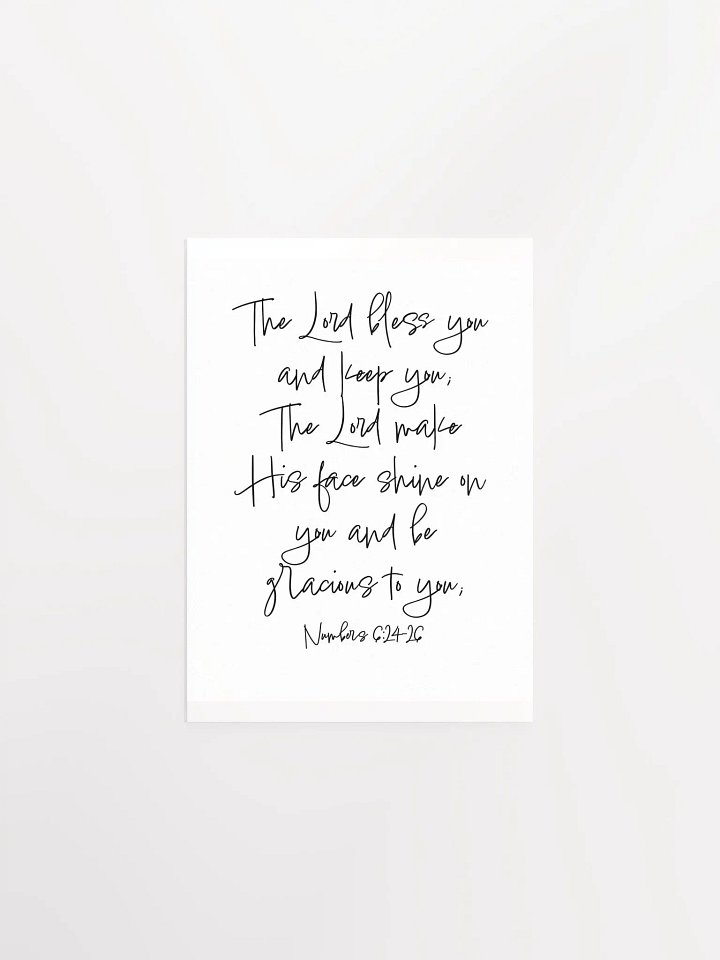 The Lord bless you
and keep you;
The Lord make
His face shine on
you and be
gracious to you;
Numbers 6:24-26